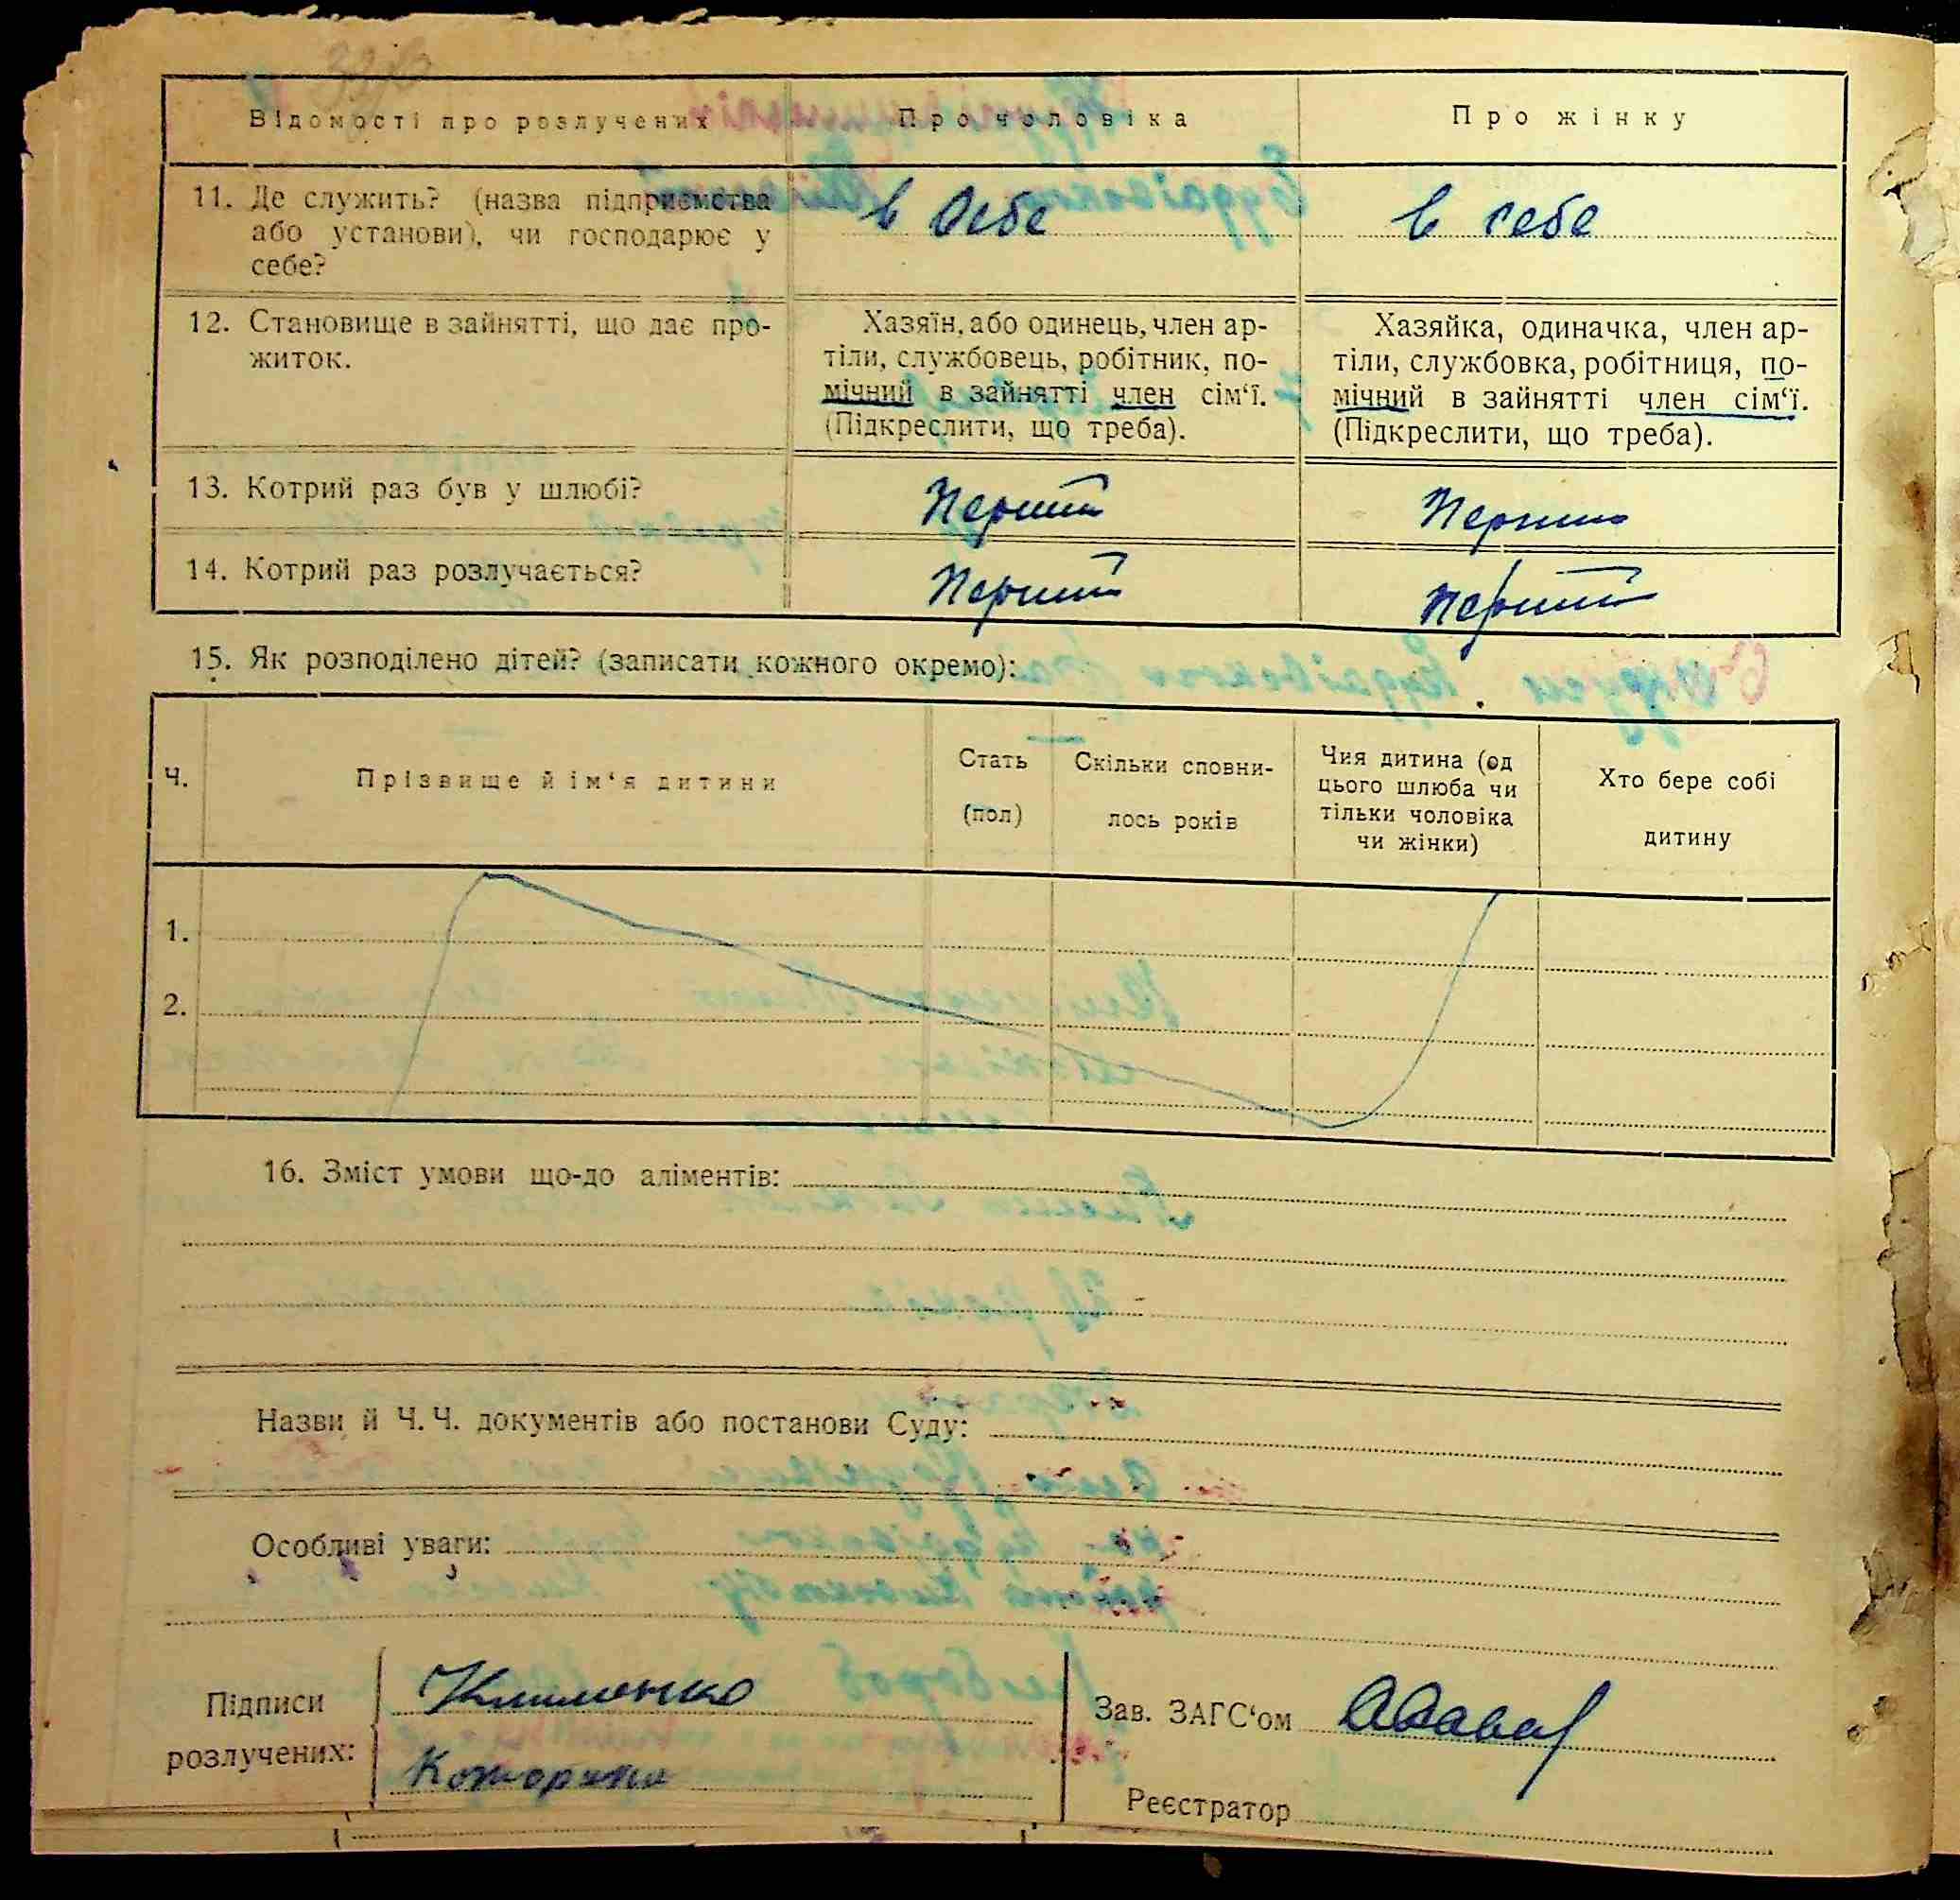 Відомості про розлучених
Про чоловіка
Про жінку
11. Де служить? (назва підприємства
або установи), чи господарює у
себе?
в себе
в себе
12. Становище в зайнятті, що дає про-
житок.
Хазяїн, або одинець, член ар-
тіли, службовець, робітник, по-
мічний в зайнятті член сім‘ї.
(Підкреслити, що треба).
Хазяйка, одиначка, член ар-
тіли, службовка, робітниця, по-
мічний в зайнятті член сім‘ї.
(Підкреслити, що треба).
13. Котрий раз був у шлюбі?
Перший
Перший
14. Котрий раз розлучається?
Перший
Перший
15. Як розподілено дітей? (записати кожного окремо):
Ч.
Прізвище й ім‘я дитини
Стать
(пол)
Скільки сповни-
лось років
Чия дитина (од
цього шлюба чи
тільки чоловіка
чи жінки)
Хто бере собі
дитину
1.
2.
16. Зміст умови що-до аліментів:
Назви й Ч. Ч. документів або постанови Суду:
Особливі уваги:
Підписи
розлучених:
Клименко
Зав. ЗАГС‘ом
Реєстратор